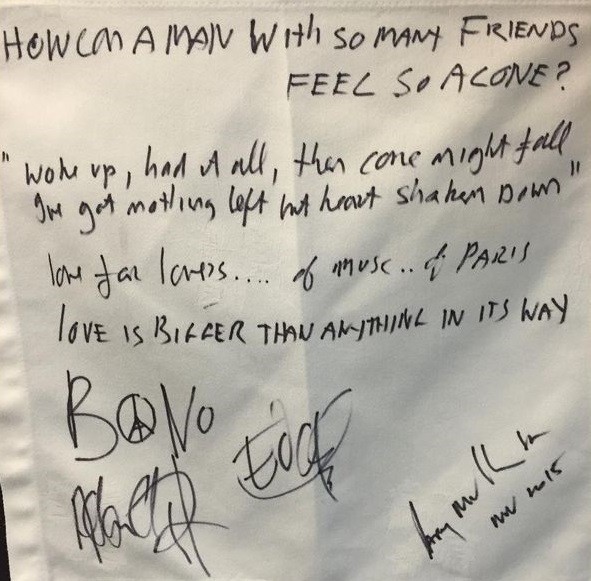 HOW CAN A MAN WITH SO MANY FRIENDS
FEEL SO ALONE?
"woke up, had it all, then come night fall
I've got nothing left but heart shaken down"
love for lovers.... of music.. of PARIS
LOVE IS BIGGER THAN ANYTHING IN ITS WAY
BONO
EDGE
Adam
Larry Mullen Jr
NOV 2015